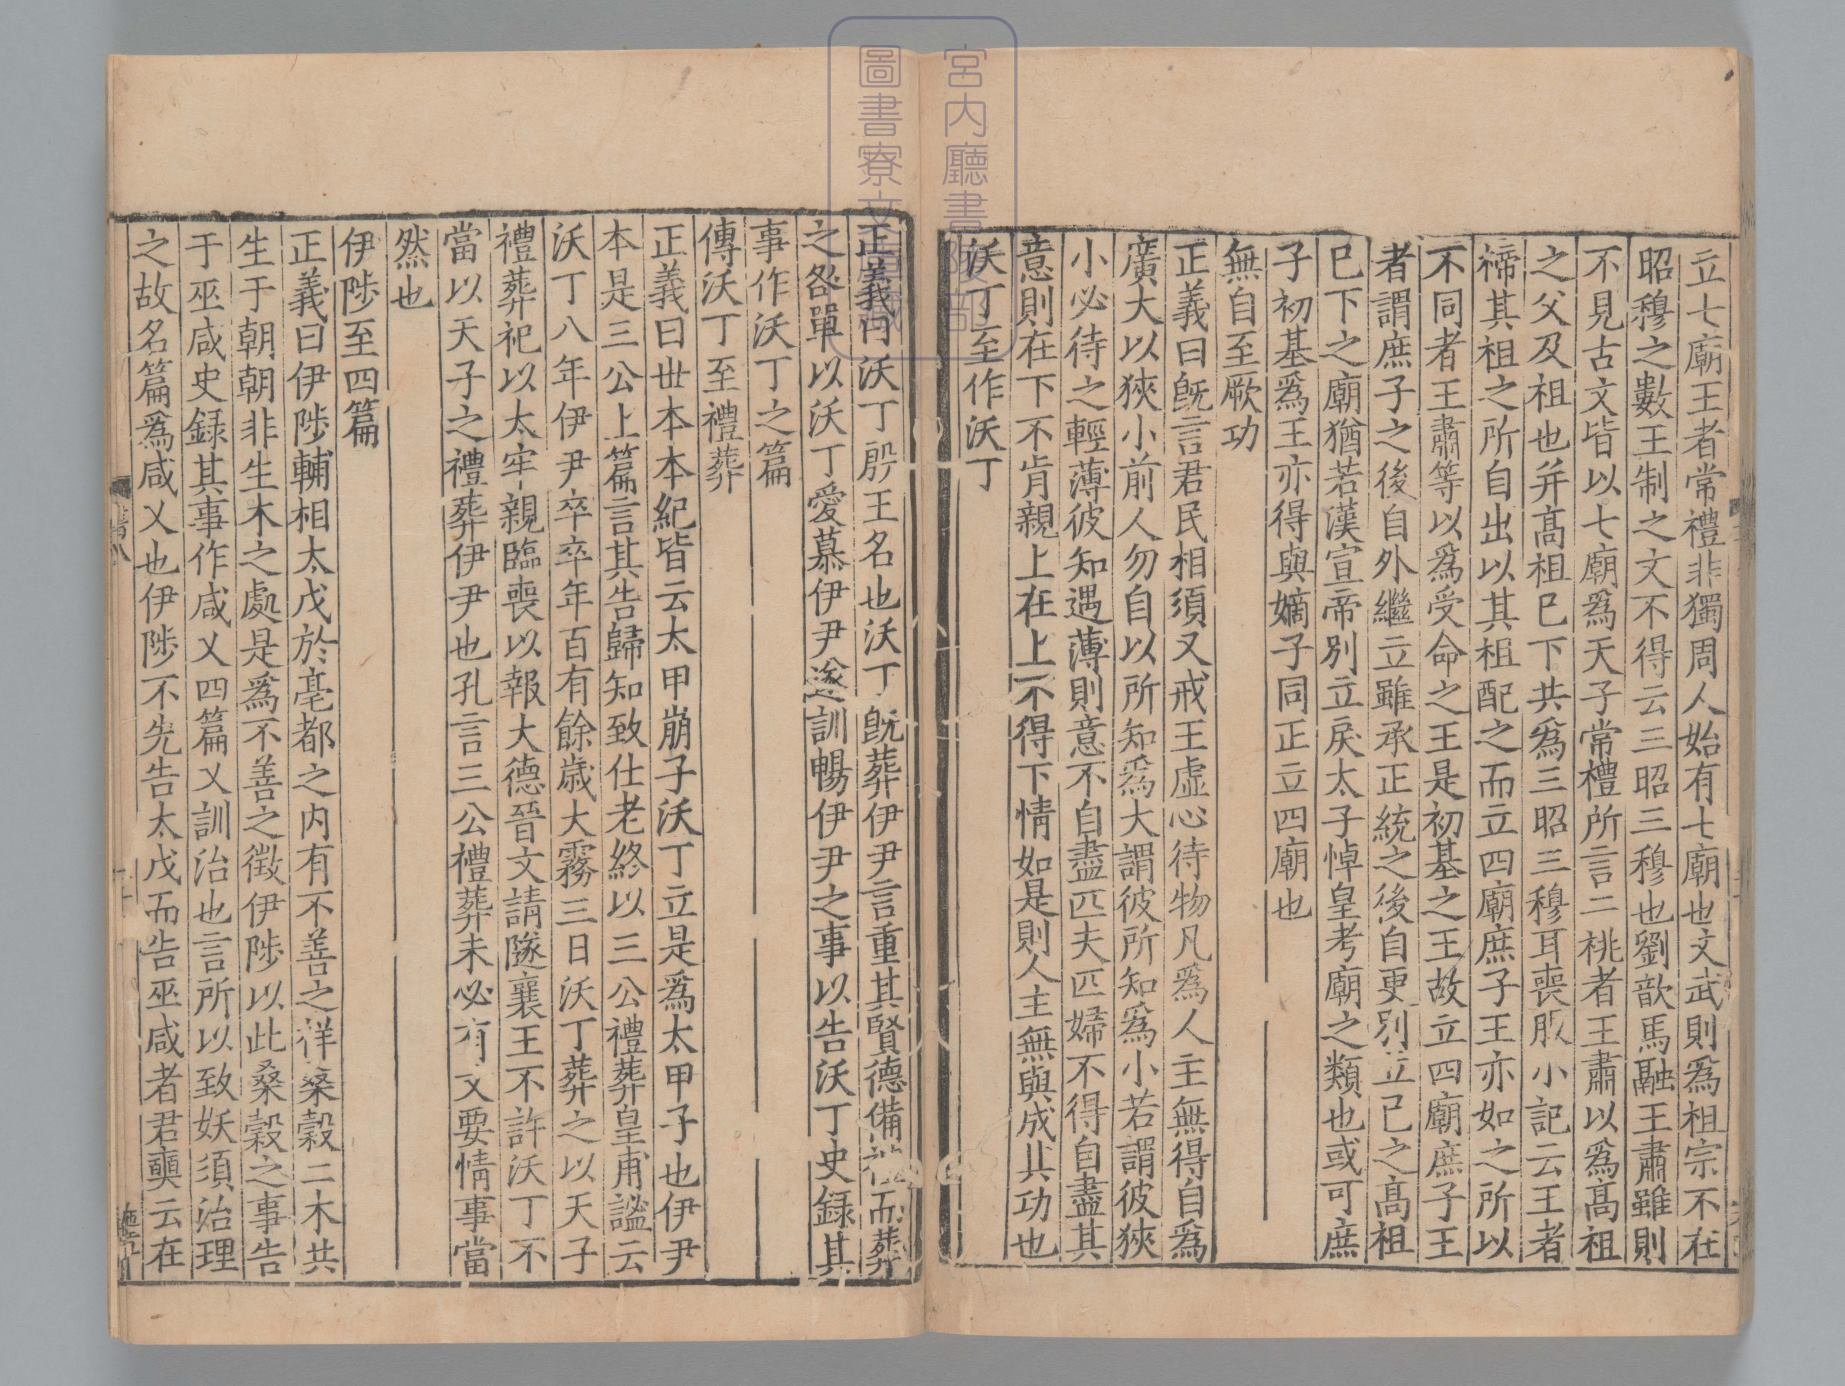 立七廟王者常禮非獨周人始有七廟也文武則爲祖宗不在
昭穆之數王制之文不得云三昭三穆也劉歆馬融王肅雖則
不見古文皆以七廟爲天子常禮所言二祧者王肅以爲髙祖
之父及祖也并髙祖已下共爲三昭三穆耳喪服小記云王者
禘其祖之所自出以其祖配之而立四廟庶子王亦如之所以
不同者王肅等以爲受命之王是初基之王故立四廟庶子王
者謂庶子之後自外繼立雖承正統之後自更別立己之髙祖
已下之廟猶若漢宣帝別立戾太子悼皇考廟之類也或可庶
子初基爲王亦得與嫡子同正立四廟也
無自至厥功
正義曰旣言君民相須又戒王虛心待物凡爲人主無得自爲
廣大以狹小前人勿自以所知爲大謂彼所知爲小若謂彼狹
小必待之輕薄彼知遇薄則意不自盡匹夫匹婦不得自盡其
意則在下不肯親上在上不得下情如是則人主無與成其功也
沃丁至作沃丁
正義曰沃丁殷王名也沃丁旣葬伊尹言重其賢德備禮而葬
之咎單以沃丁愛慕伊尹遂訓暢伊尹之事以告沃丁史録其
事作沃丁之篇
傳沃丁至禮葬
正義曰丗本本紀皆云太甲崩子沃丁立是爲太甲子也伊尹
本是三公上篇言其告歸知致仕老終以三公禮葬皇甫謐云
沃丁八年伊尹卒卒年百有餘歳大霧三日沃丁葬之以天子
禮葬祀以太牢親臨喪以報大德晉文請隧襄王不許沃丁不
當以天子之禮葬伊尹也孔言三公禮葬未必有文要情事當
然也
伊陟至四篇
正義曰伊陟輔相太戊於亳都之内有不善之祥桑穀二木共
生于朝朝非生木之處是爲不善之徵伊陟以此桑穀之事告
于巫咸史録其事作咸乂四篇乂訓治也言所以致妖須治理
之故名篇爲咸乂也伊陟不先告太戊而告巫咸者君奭云在
宮内廳書陵部
圖書寮文庫藏